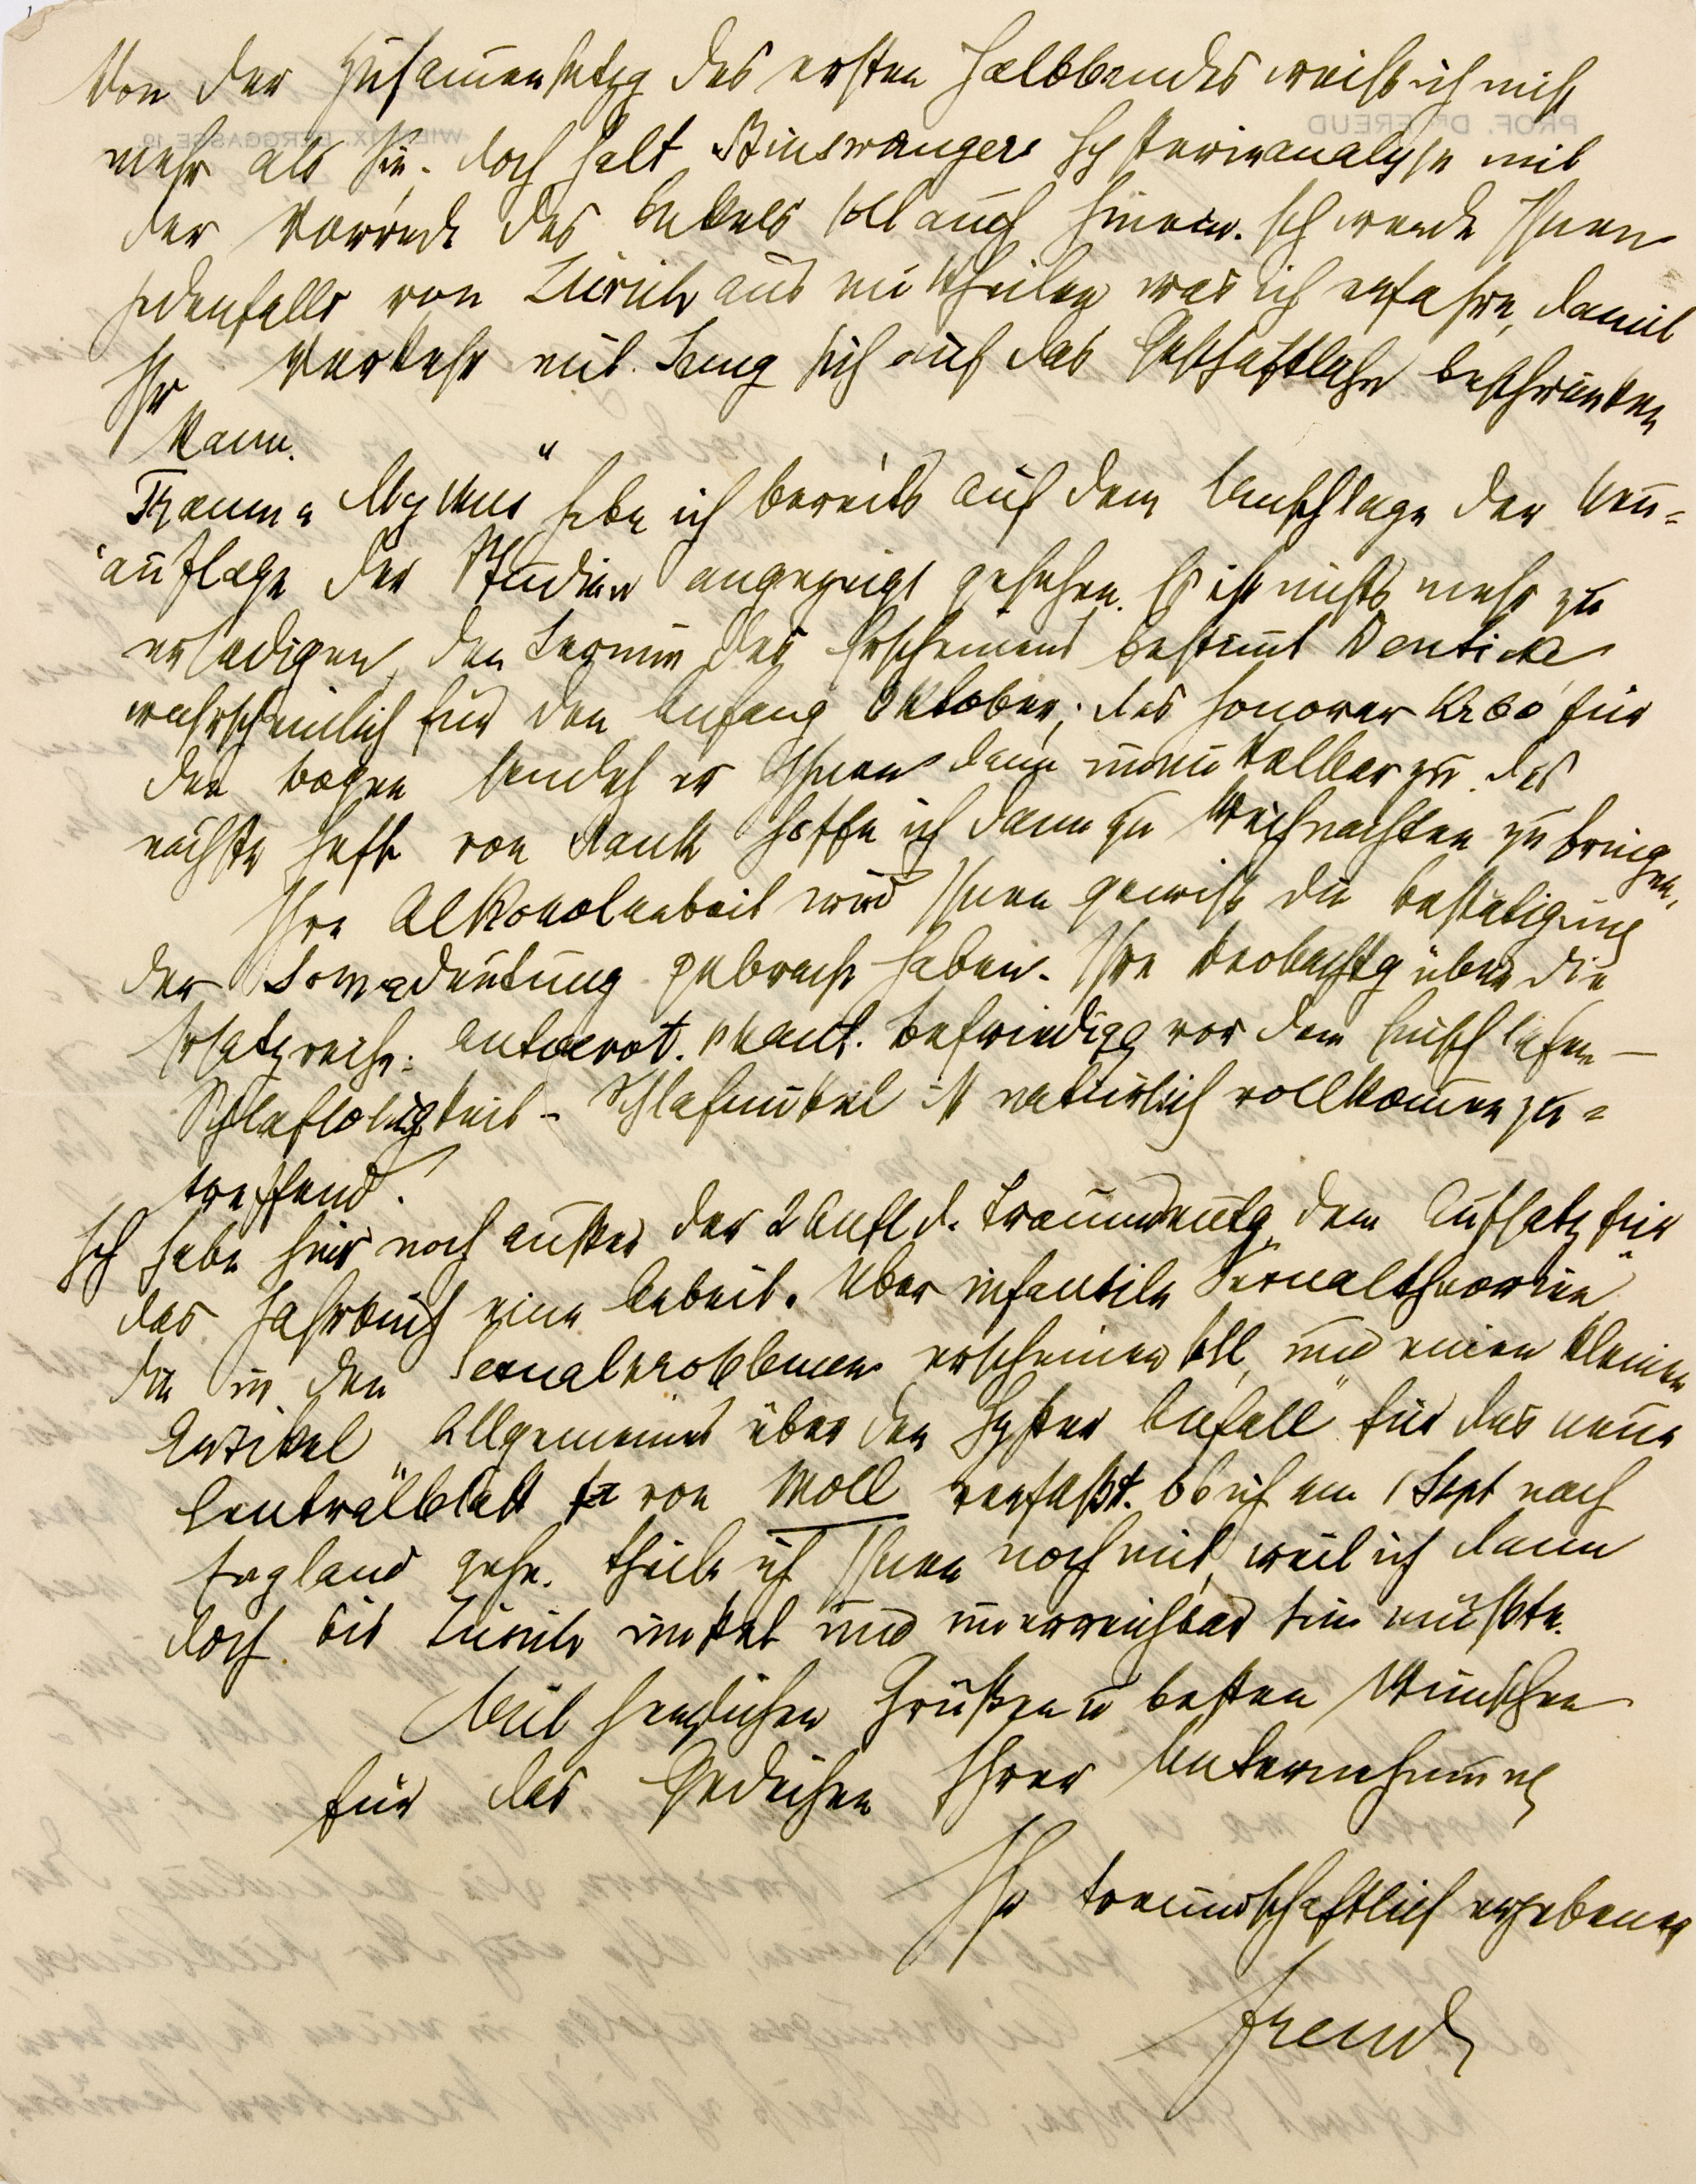 Von der Zusammensetzg des ersten Halbbandes weiß ich nicht
mehr als Sie. Doch halt Binswangers Hysterieanalyse mit
der Vorrede des Onkels soll auch hinein. Ich werde Ihnen
jedenfalls von Zürich aus mittheilen was ich erfahre, damit
Ihr Verkehr mit Jung sich auf das Geschäftliche beschränken
kann.
Traum u Mythus" habe ich bereits auf dem Umschlage der Neu=
auflage der Studien angezeigt gesehen. Es ist nichts mehr zu
erledigen, den Termin des Erscheinens bestimmt Deuticke
wahrscheinlich für den Anfang Oktober; das Honorar K 60 für
den Bogen sendet er Ihnen dann unmittelbar zu. Das
nächste Heft von Rank hoffe ich dann zu Weihnachten zu bringen.
Ihre Alkoholarbeit wird Ihnen gewiß die Bestätigung
der Somadeutung gebracht haben. Ihre Beobachtg über die
Ersatzreihe: autoerot. phant. Befriedigg vor dem Einschlafen —
Schlaflosigkeit – Schlafmittel ist natürlich vollkommen zu=
treffend.
Ich habe hier noch außer der 2 Aufl d. Traumdeutg, dem Aufsatz für
das Jahrbuch eine Arbeit „Über infantile Sexualtheorien"
die in den Sexualproblemen erscheinen soll, und einen kleinen
Artikel „Allgemeines über den hyster Anfall" für das neue
Centralblatt von Moll verfaßt. Ob ich am 1 Sept nach
England gehe, theile ich Ihnen noch mit, weil ich dann
doch bis Zürich unstet und unerreichbar sein müßte.
Mit herzlichen Grüßen u besten Wünschen
für das Gedeihen Ihrer Unternehmung
Ihr freundschaftlich ergebener
Freud
PROF. DR FREUD
WIEN, IX. BERGGASSE 19